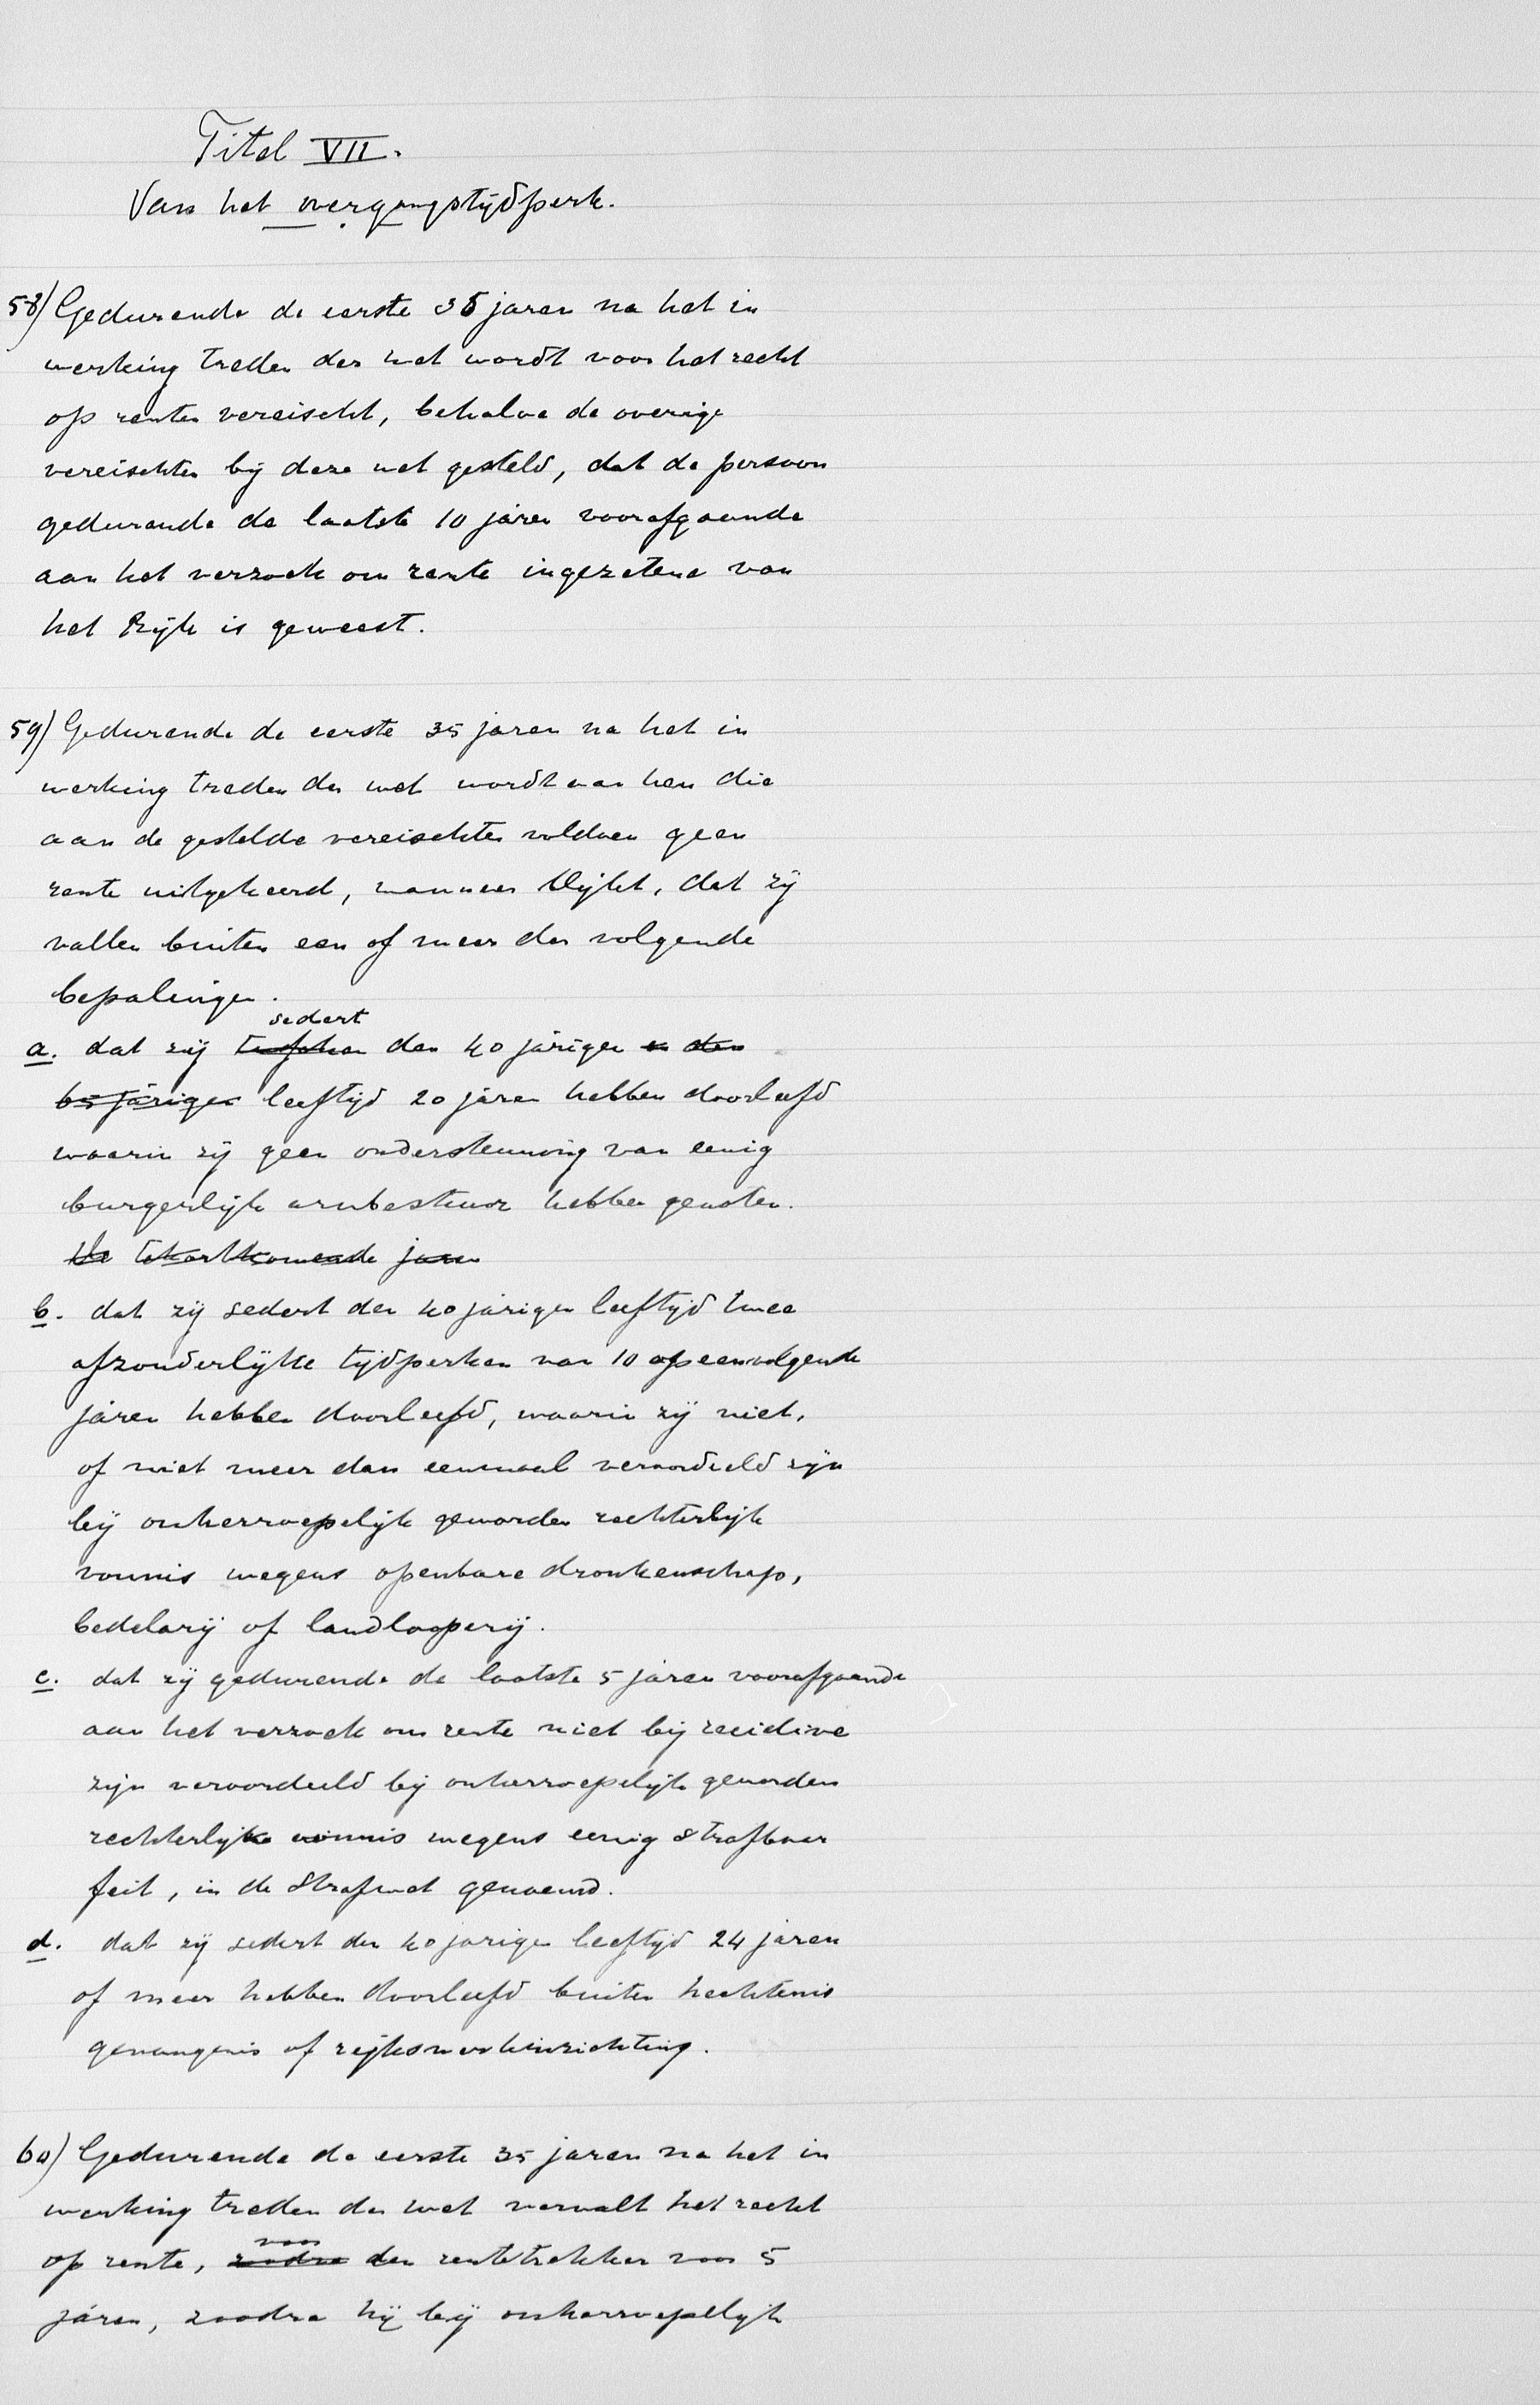 Titel VII.
Van het overgangstijdperk.
58) Gedurende de eerste 35 jaren na het in
werking treden der wet wordt voor het recht
op rente vereischt, behalve de overige
vereischten bij deze wet gesteld, dat de persoon
gedurende de laatste 10 jaren voorafgaande
aan het verzoek om rente ingezetene van
het Rijk is geweest.
59) Gedurende de eerste 35 jaren na het in
werking treden der wet wordt aan hen die
aan de gestelde vereischten voldoen geen
rente uitgekeerd, wanneer blijkt, dat zij
vallen buiten een of meer der volgende
bepalingen.
sedert
a. dat zij tusschen den 40 jarigen en den
65 jarigen leeftijd 20 jaren hebben doorleefd
waarin zij geen ondersteuning van eenig
burgerlijk armbestuur hebben genoten.
De tekortkomende jaren
b. dat zij sedert den 40 jarigen leeftijd twee
afzonderlijke tijdperken van 10 opeenvolgende
jaren hebben doorleefd, waarin zij niet,
of niet meer dan eenmaal veroordeeld zijn
bij onherroepelijk geworden rechterlijk
vonnis wegens openbare dronkenschap,
bedelarij of landlooperij.
c. dat zij gedurende de laatste 5 jaren voorafgaande
aan het verzoek om rente niet bij recidive
zijn veroordeeld bij onherroepelijk geworden
rechterlijk vonnis wegens eenig strafbaar
feit, in de Strafwet genoemd.
d. dat zij sedert den 40 jarigen leeftijd 24 jaren
of meer hebben doorleefd buiten hechtenis
gevangenis of rijkswerkinrichting.
60) Gedurende de eerste 35 jaren na het in
werking treden der wet vervalt het recht
voor
op rente, zoodra den rentetrekker voor 5
jaren, zoodra hij bij onherroepelijk